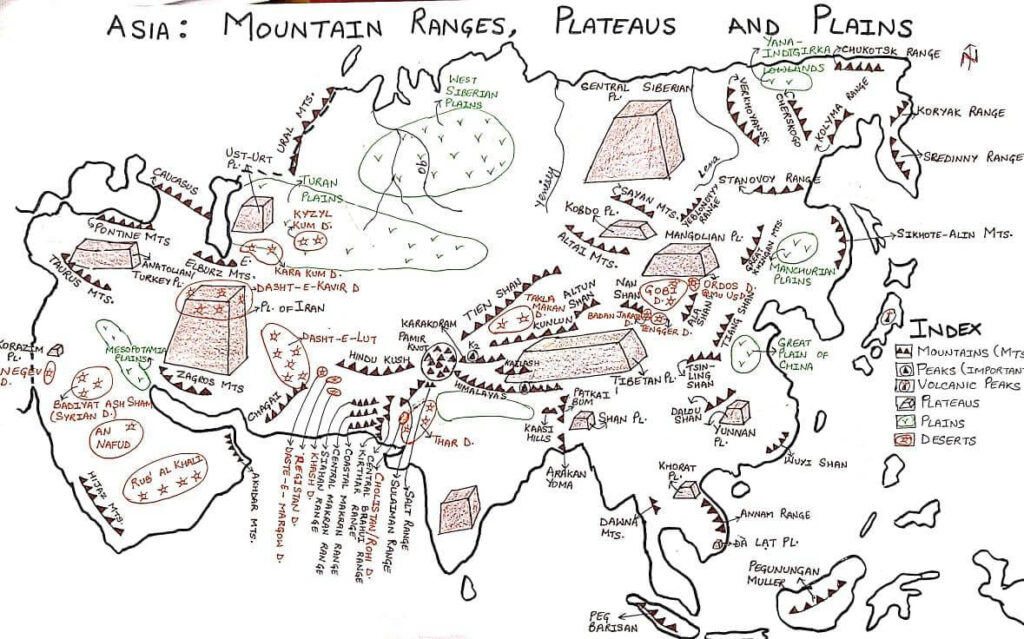 ASIA: MOUNTAIN RANGES, PLATEAUS AND PLAINS
N
YANA-
INDIGIRKA
LOWLANDS
CHUKOTSK RANGE
WEST
SIBERIAN
PLAINS
CENTRAL SIBERIAN
PL.
VERKHOYANSK
CHERSKOGO
KOLYMA RANGE
KORYAK RANGE
SREDINNY RANGE
URAL MTS.
UST-URT
PL.
CAUCASUS
TURAN
PLAINS
KYZYL
KUM D.
Yenisey
Lena
STANOVOY RANGE
SAYAN MTS.
YEBLONOVYY
RANGE
KOBDO PL.
ALTAI MTS.
MANGOLIAN PL.
GREAT
KHINGAN MTS.
MANCHURIAN
PLAINS
SIKHOTE-ALIN MTS.
PONTINE MTS.
ANATOLIAN/
TURKEY PL.
TAURUS MTS.
ELBURZ MTS.
KARA KUM D.
DASHT-E-KAVIR D.
PL. OF IRAN
DASHT-E-LUT
TIEN SHAN
TAKLA
MAKAN D.
ALTUN
SHAN
KUNLUN
NAN
SHAN
GOBI
D.
ORDOS D.
BADAN JARAN
D.
TENGGER D.
ALA
SHAN
TIANG SHAN
GREAT
PLAIN OF
CHINA
INDEX
MOUNTAINS (MTS
PEAKS (IMPORTAN
VOLCANIC PEAKS
PLATEAUS
PLAINS
DESERTS
KORAZIM
PL.
NEGEV
D.
MESOPOTAMIA
PLAINS
ZAGROS MTS
BADIYAT ASH SHAM
(SYRIAN D.)
AN
NAFUD
RUB' AL KHALI
HIJAZ MTS.
AKHDAR MTS.
CHAGAI
HINDU KUSH
KARAKORAM
PAMIR
KNOT
K2
KAILASH
HIMALAYAS
TIBETAN PL.
TSIN-
LING
SHAN
PATKAI
BUM
KAASI
HILLS
SHAN PL.
DALOU
SHAN
YUNNAN
PL.
WUYI SHAN
THAR D.
ARAKAN
YOMA
DASTE-E-MARGOW D.
REGISTAN D.
KHASH D.
SIAHAN RANGE
CENTRAL MAKRAN RANGE
COASTAL MAKRAN RANGE
KIRTHAR RANGE
CENTRAL BRAHUI RANGE
CHOLISTAN/ROHI D.
SULAIMAN RANGE
SALT RANGE
KHORAT PL.
DAWNA
MTS.
ANNAM RANGE
DA LAT PL.
PEGUNUNGAN
MULLER
PEG
BARISAN